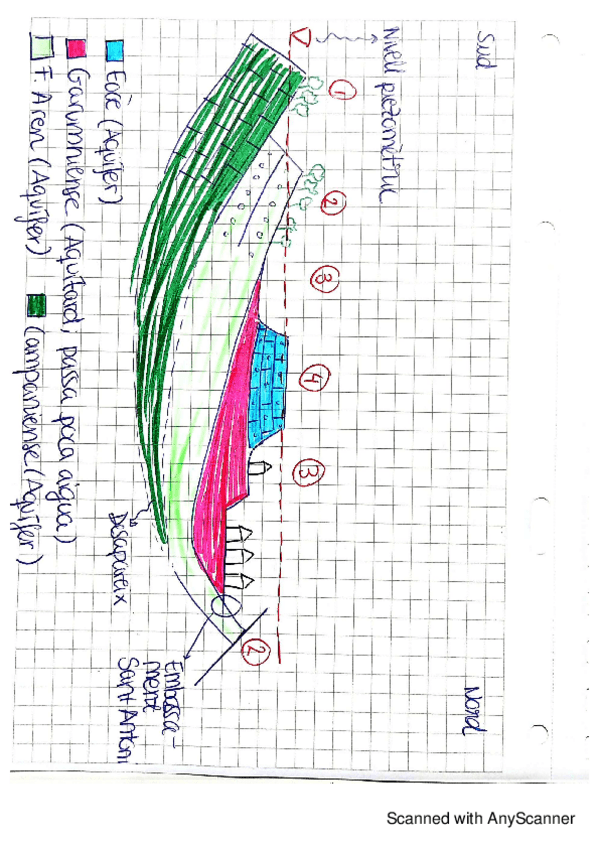 Sud
Nord
Nivell piezomètric
1
2
3
4
3
2
Desapareix
Embassa-
ment
Sant Antoni
Eocè (Aqüífer)
Garumniense (Aquitard; passa poca aigua)
F. Aren (Aqüífer)
Campaniense (Aqüífer)
Scanned with AnyScanner